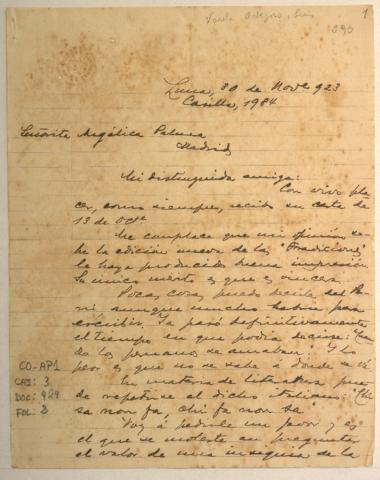 Varela Orbegoso, Luis
1
290
Lima, 30 de Nove 923
Casilla, 1984
Señorita Angélica Palma
Madrid
Mi distinguida amiga:
Con vivo pla-
cer, como siempre, recibo su carta de
13 de Octe
Me complace que mi opinión so-
bre la edición nueva de las "Tradiciones"
le haya producido buena impresión.
Su único mérito es que es sincera.
Pocas cosas puedo decirle del Pe-
rú aunque mucho habría para
escribir. Ya pasó definitivamente
el tiempo en que podía decirse:
do los peruanos se amaban: Y lo
peor es que no se sabe a donde se vá.
En materia de literatura pue-
de repetirse el dicho italiano: "Chi
sa non fa, chi fa non sa"
Voy a pedirle un favor y es
el que se moleste en preguntar
el valor de una insignia de la
CO-AP1
CAJ: 3
DOC: 929
FOL: 2